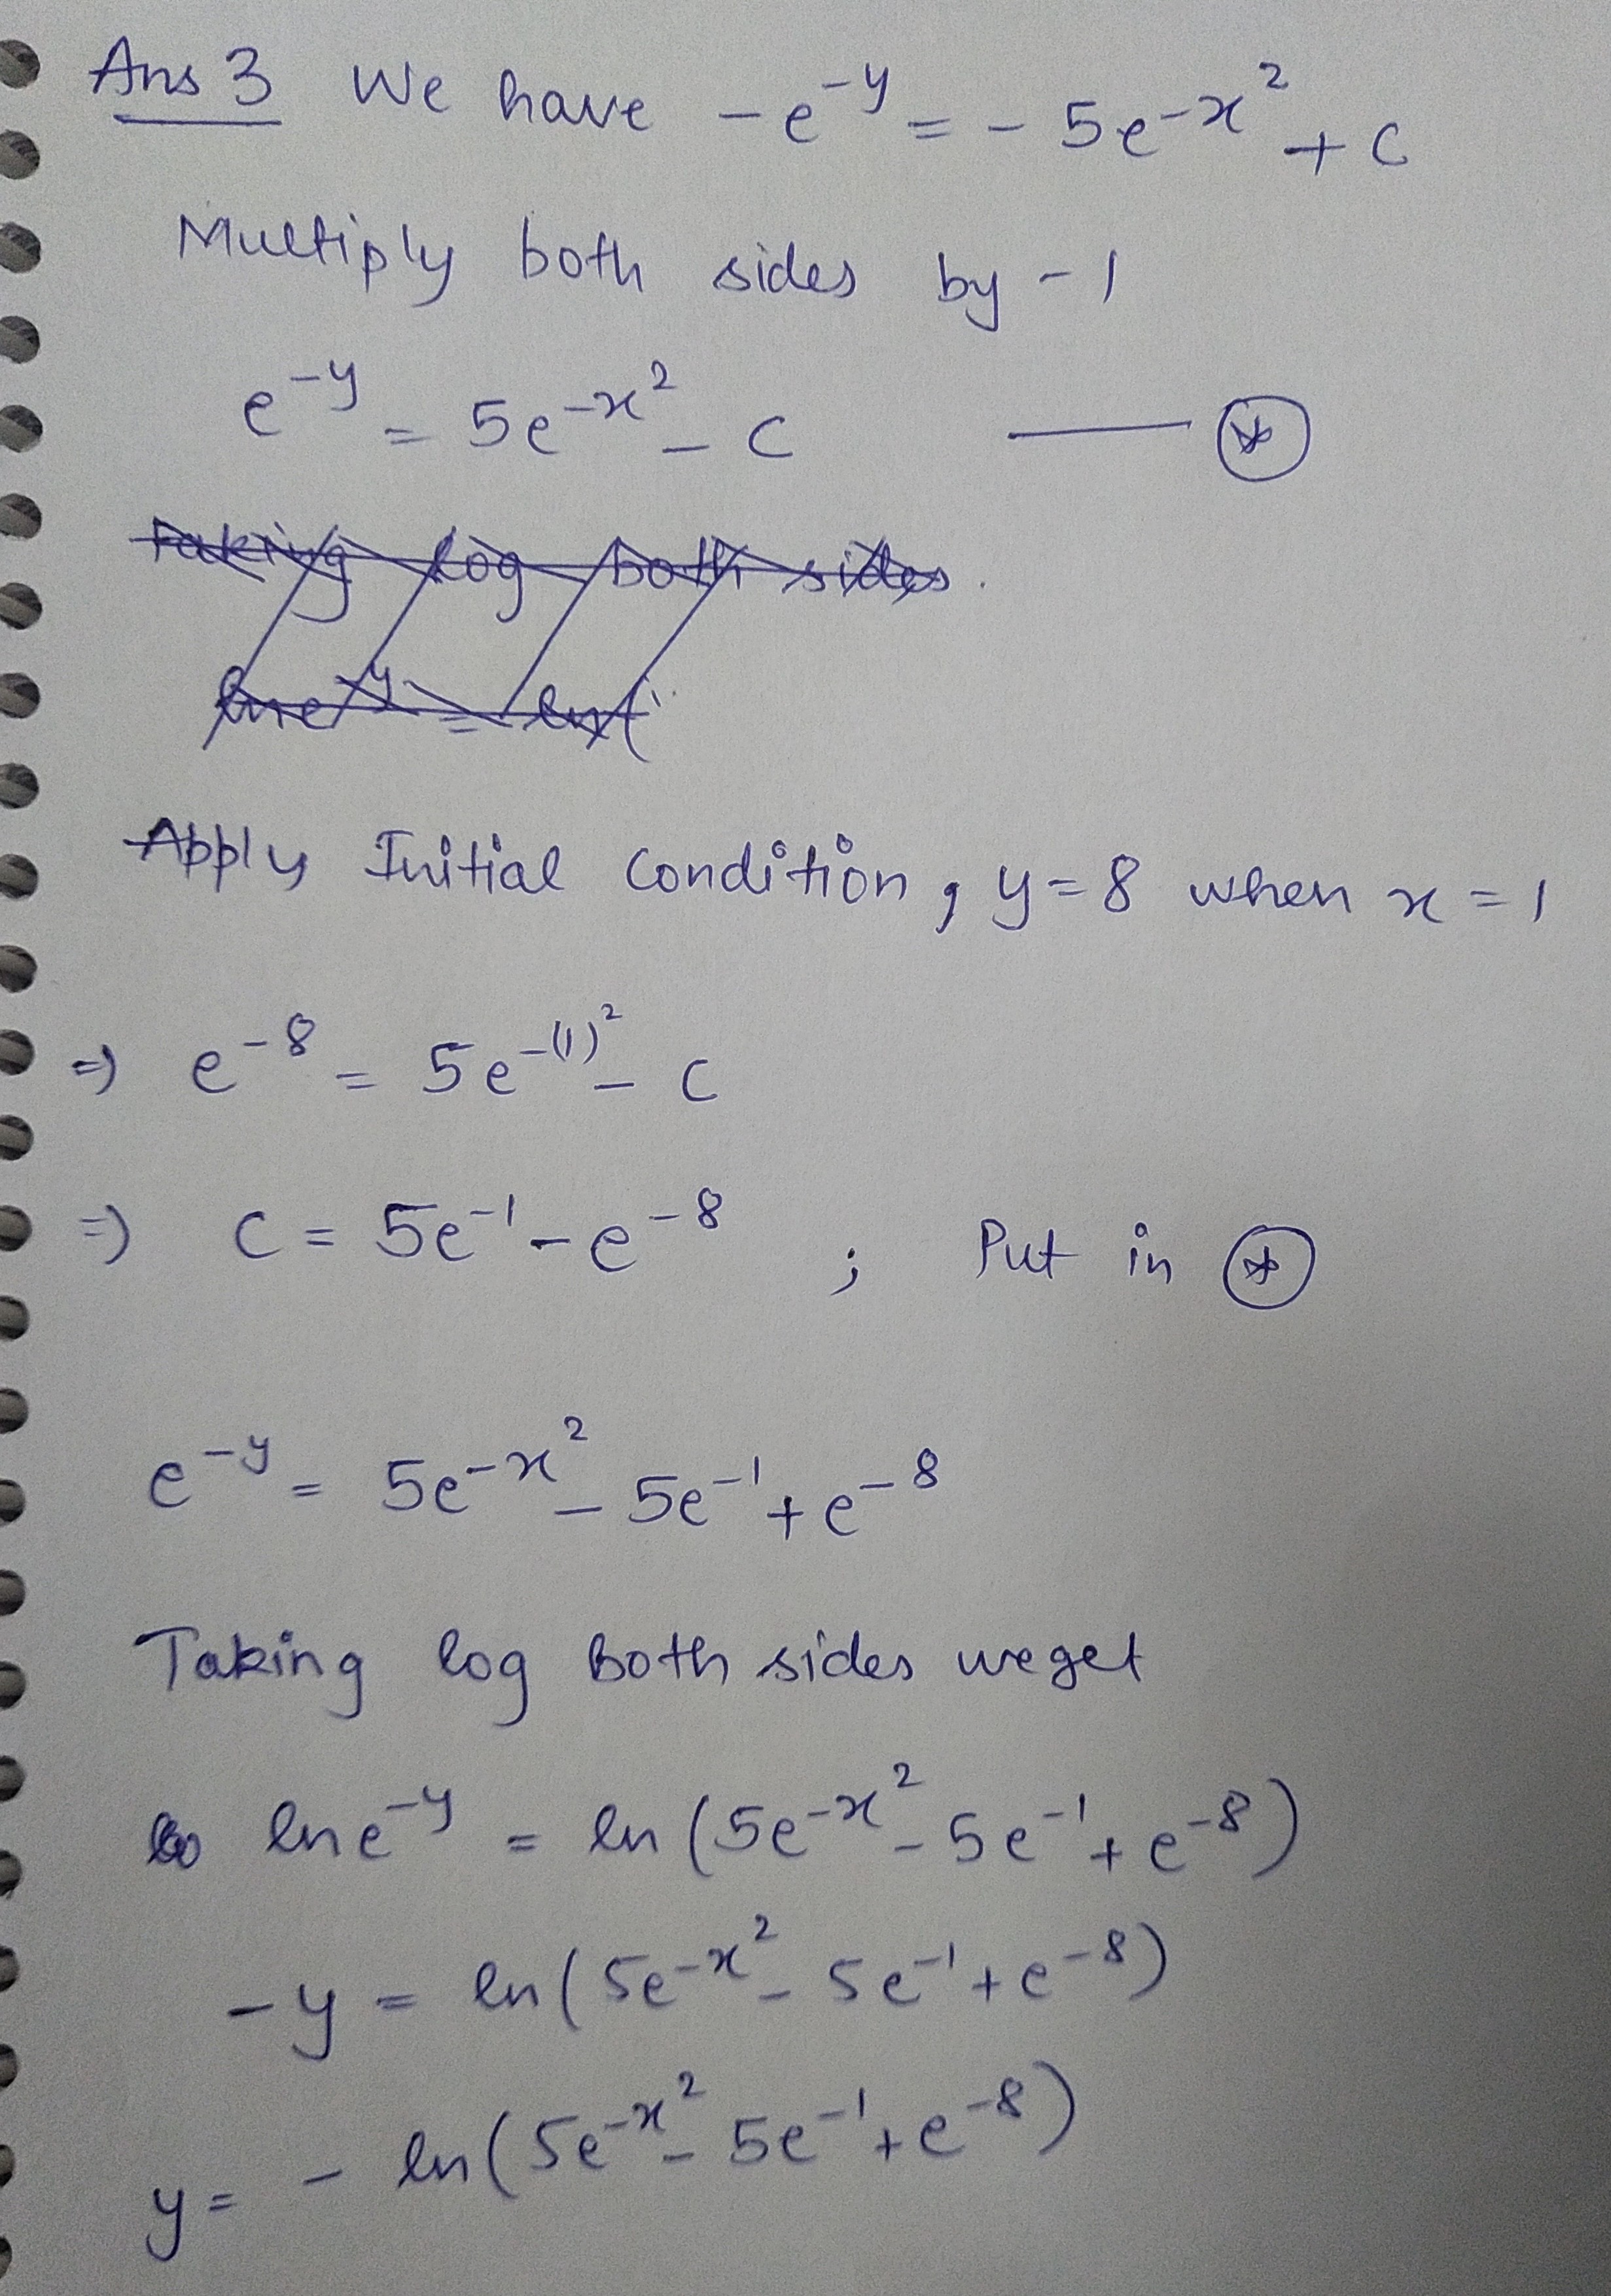 Ans 3 We have -e^-y = -5e^-x^2 + C
Multiply both sides by -1
e^-y = 5e^-x^2 - C —— ⊛
Taking log both sides.
ln e^-y = ln(
Apply Initial Condition, y=8 when x=1
⇒ e^-8 = 5e^-(1)^2 - C
⇒ C = 5e^-1 - e^-8 ; Put in ⊛
e^-y = 5e^-x^2 - 5e^-1 + e^-8
Taking log Both sides we get
ln e^-y = ln(5e^-x^2 - 5e^-1 + e^-8)
-y = ln(5e^-x^2 - 5e^-1 + e^-8)
y = - ln(5e^-x^2 - 5e^-1 + e^-8)